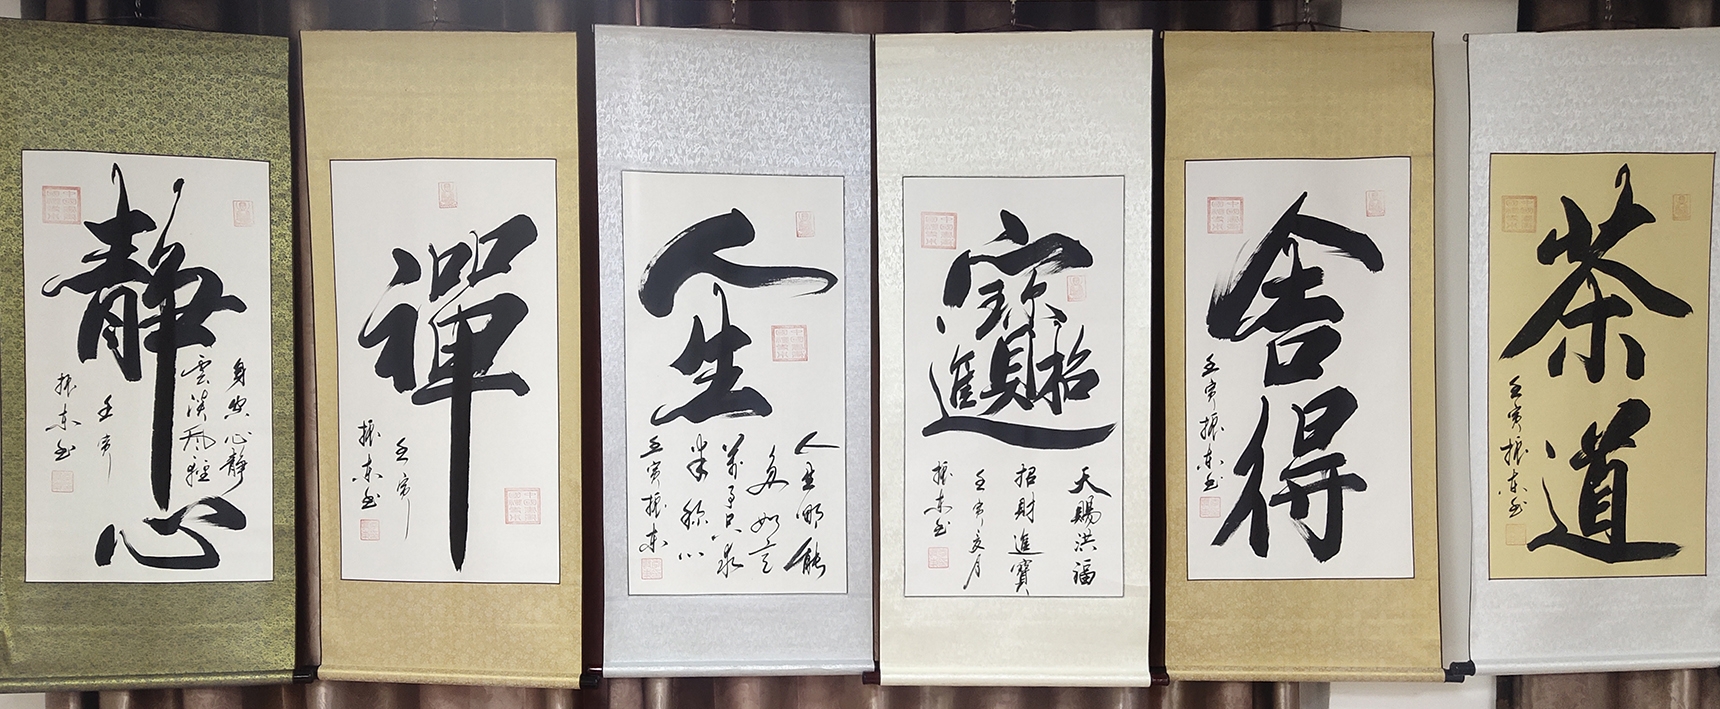 静心
身安心静
雲淡风轻
壬寅
振东书
禪
壬寅
振东书
人生
人生哪能
多如意
万事只求
半称心
壬寅振东
招財進寶
天赐洪福
招財進寶
壬寅亥月
振东书
舍得
壬寅振东书
茶道
壬寅振东书